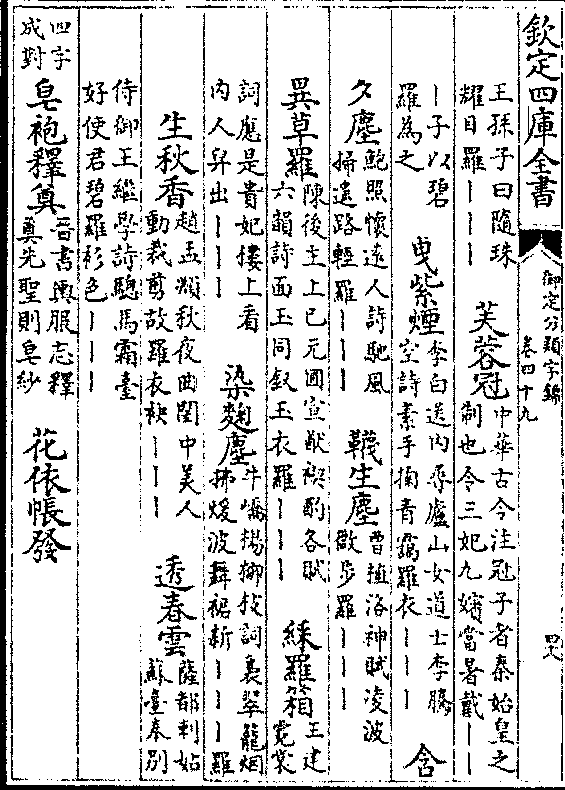 欽定四庫全書
御定分類字錦
卷四十九
王孫子曰隨珠
耀日羅丨丨丨丨
芙蓉冠
中華古今注冠子者秦始皇之
制也令三妃九嬪當暑戴丨丨
丨子以碧
羅為之
曳紫煙
李白送内尋廬山女道士李騰
空詩素手掬青靄羅衣丨丨丨
含
夕塵
鮑照懷遠人詩馳風
掃遙路輕羅丨丨丨
韈生塵
曹植洛神賦凌波
微步羅丨丨丨
異草羅
陳後主上巳元圃宣猷禊酌各賦
六韻詩面玉同釵玉衣羅丨丨丨
綵羅箱
王建
霓裳
詞應是貴妃樓上看
内人舁出丨丨丨
染麴塵
牛嶠楊柳枝詞裊翠籠烟
拂煖波舞裙新丨丨丨羅
生秋香
趙孟頫秋夜曲閨中美人
動裁剪故羅衣袂丨丨丨
透春雲
薩都剌姑
蘇臺奉別
侍御王繼學詩驄馬霜臺
好使君碧羅衫色丨丨丨
四字
成對
皂袍釋奠
晉書輿服志釋
奠先聖則皂紗
花依帳發